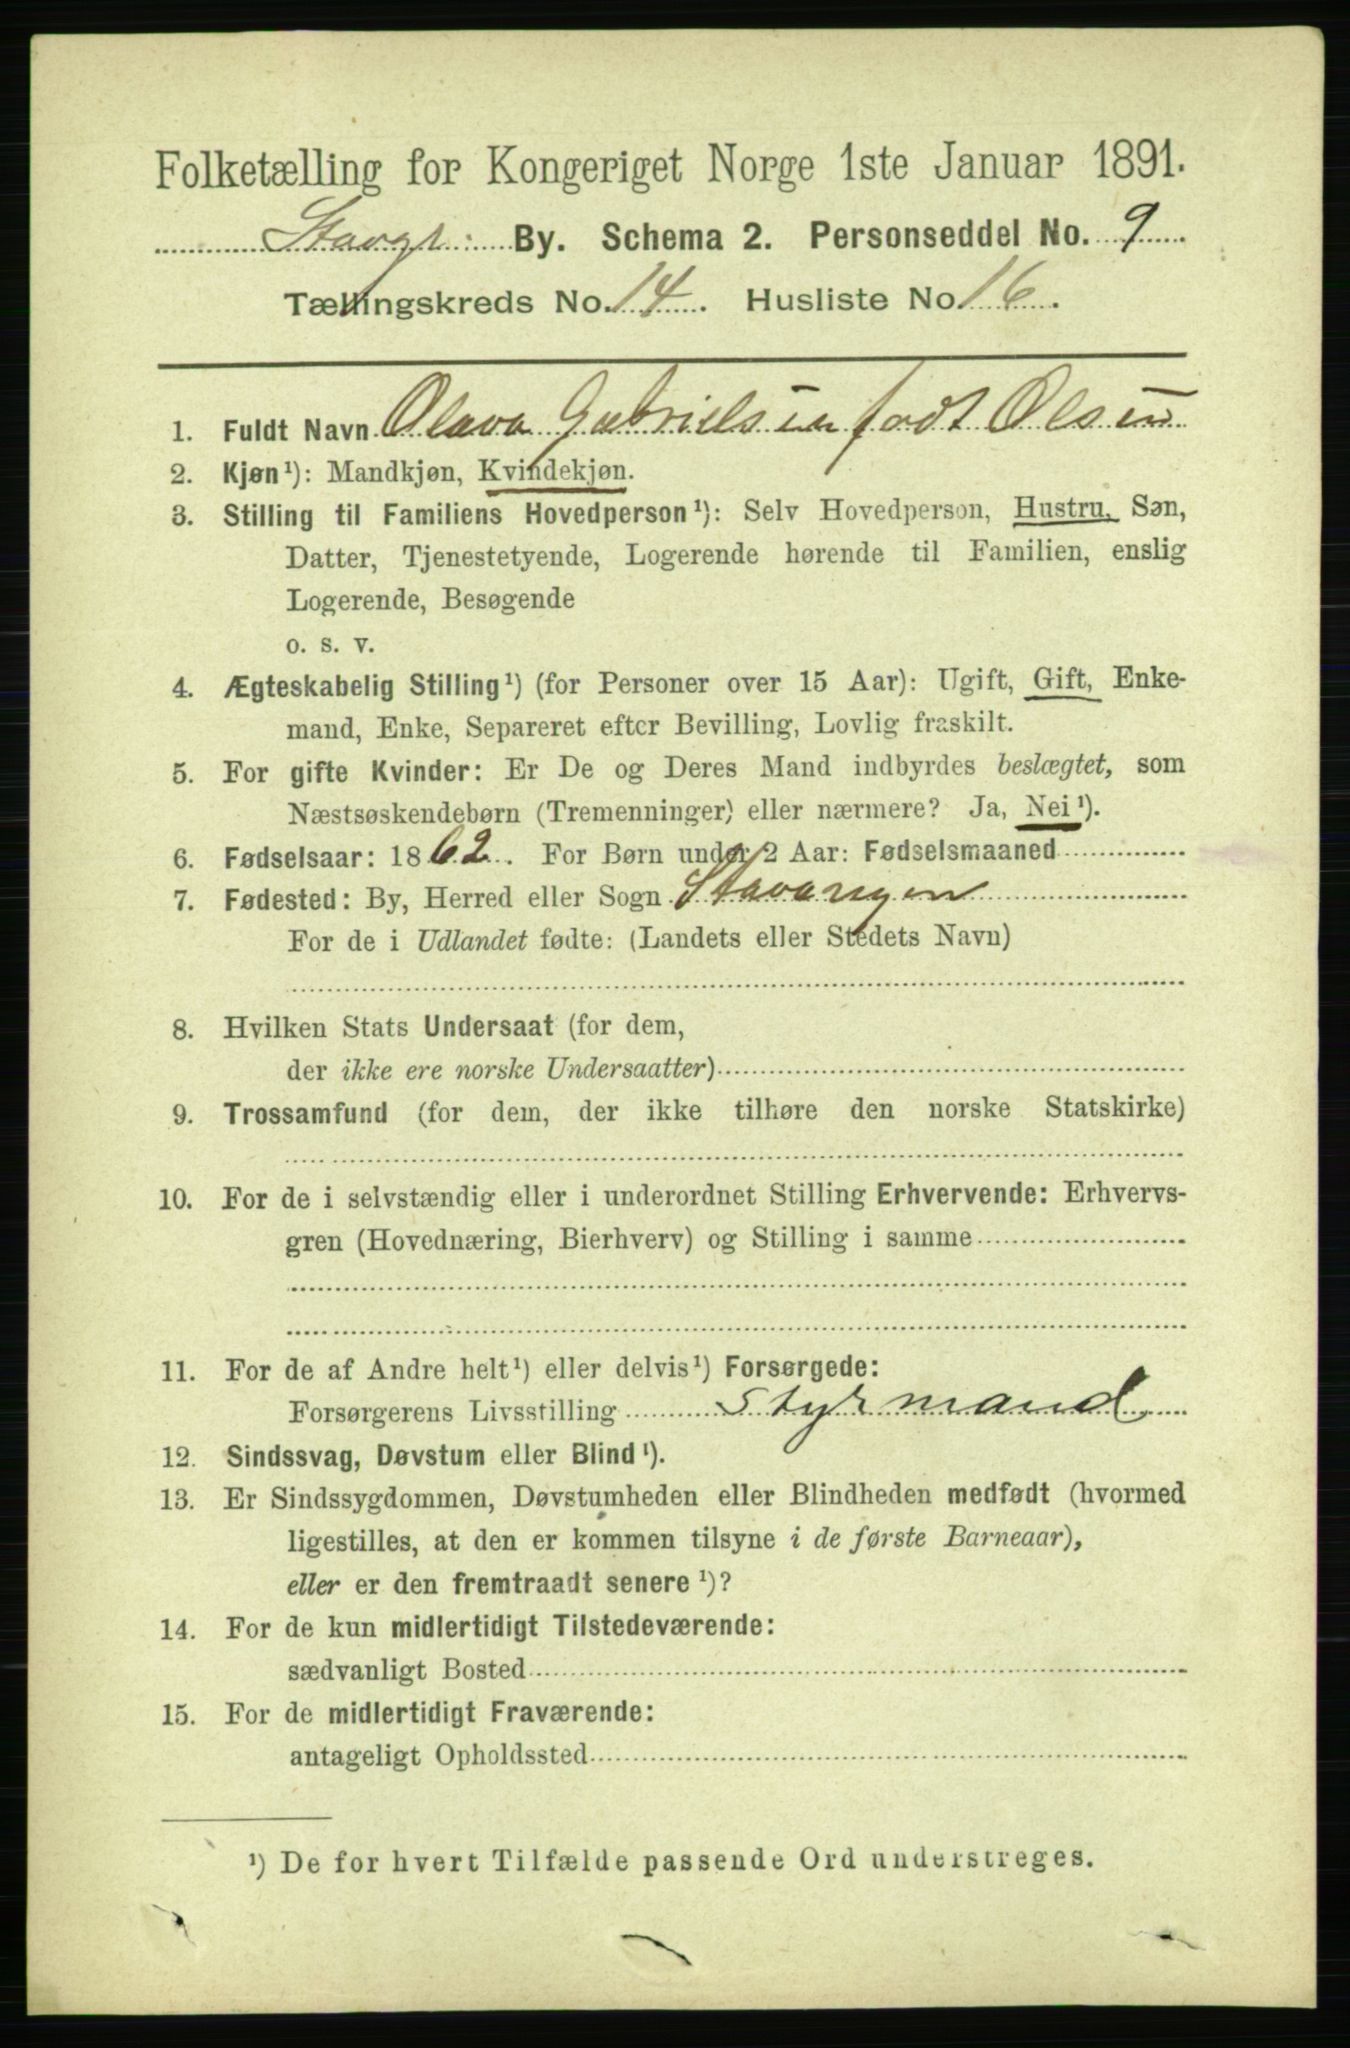 Folketælling for Kongeriget Norge 1ste Januar 1891.
Stavgr: By. Schema 2. Personseddel No. 9
Tællingskreds No. 14. Husliste No. 16.
1. Fuldt Navn Olava Gabrielsen født Olsen
2. Kjøn¹): Mandkjøn, Kvindekjøn.
3. Stilling til Familiens Hovedperson¹): Selv Hovedperson, Hustru, Søn,
Datter, Tjenestetyende, Logerende hørende til Familien, enslig
Logerende, Besøgende
o. s. v.
4. Ægteskabelig Stilling¹) (for Personer over 15 Aar): Ugift, Gift, Enke-
mand, Enke, Separeret efter Bevilling, Lovlig fraskilt.
5. For gifte Kvinder: Er De og Deres Mand indbyrdes beslægtet, som
Næstsøskendebørn (Tremenninger) eller nærmere? Ja, Nei¹).
6. Fødselsaar: 1862. For Børn under 2 Aar: Fødselsmaaned
7. Fødested: By, Herred eller Sogn Stavangen
For de i Udlandet fødte: (Landets eller Stedets Navn)
8. Hvilken Stats Undersaat (for dem,
der ikke ere norske Undersaatter)
9. Trossamfund (for dem, der ikke tilhøre den norske Statskirke)
10. For de i selvstændig eller i underordnet Stilling Erhvervende: Erhvervs-
gren (Hovednæring, Bierhverv) og Stilling i samme
11. For de af Andre helt¹) eller delvis¹) Forsørgede:
Forsørgerens Livsstilling Styrmand
12. Sindssvag, Døvstum eller Blind¹).
13. Er Sindssygdommen, Døvstumheden eller Blindheden medfødt (hvormed
ligestilles, at den er kommen tilsyne i de første Barneaar),
eller er den fremtraadt senere¹)?
14. For de kun midlertidigt Tilstedeværende:
sædvanligt Bosted
15. For de midlertidigt Fraværende:
antageligt Opholdssted
¹) De for hvert Tilfælde passende Ord understreges.